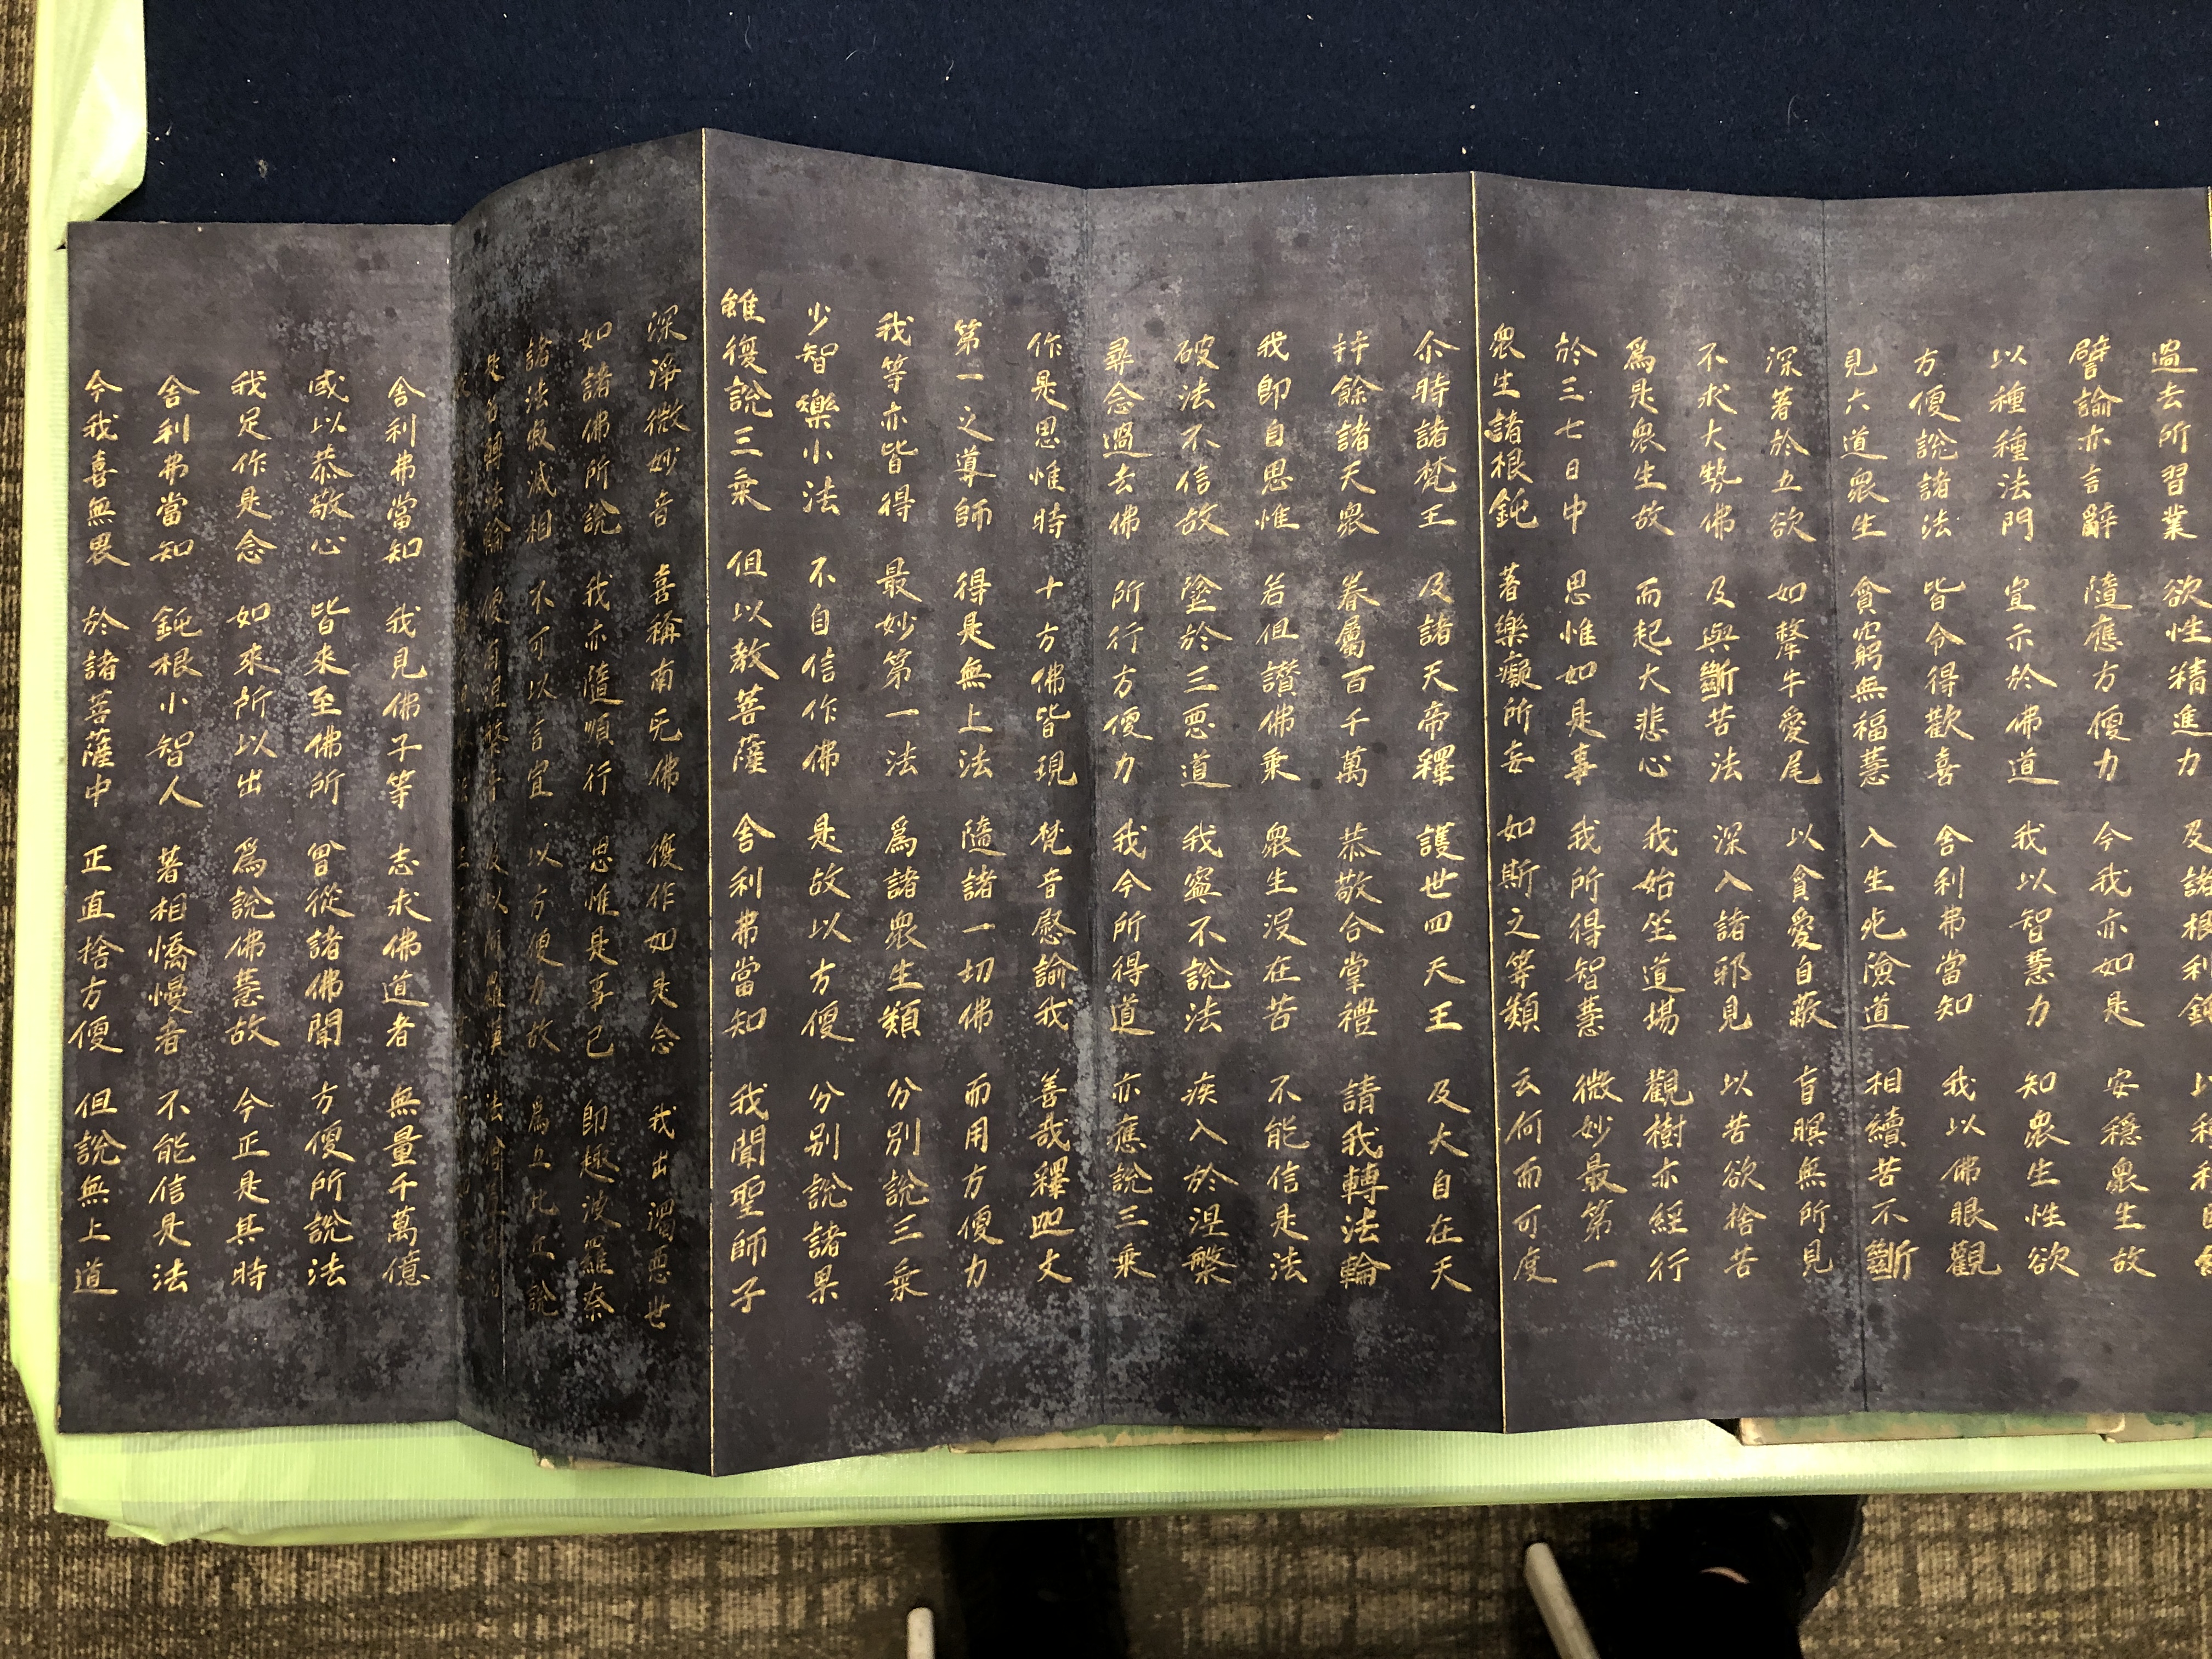 過去所習業 欲性精進力 及諸根利鈍 以種
譬諭亦言辭 隨應方便力 今我亦如是 安穩衆生故
以種種法門 宣示於佛道 我以智慧力 知衆生性欲
方便說諸法 皆令得歡喜 舍利弗當知 我以佛眼觀
見六道衆生 貧窮無福慧 入生死險道 相續苦不斷
深著於五欲 如犛牛愛尾 以貪愛自蔽 盲瞑無所見
不求大勢佛 及與斷苦法 深入諸邪見 以苦欲捨苦
爲是衆生故 而起大悲心 我始坐道場 觀樹亦經行
於三七日中 思惟如是事 我所得智慧 微妙最第一
衆生諸根鈍 著樂癡所妄 如斯之等類 云何而可度
尒時諸梵王 及諸天帝釋 護世四天王 及大自在天
幷餘諸天衆 眷屬百千萬 恭敬合掌禮 請我轉法輪
我即自思惟 若但讚佛乘 衆生沒在苦 不能信是法
破法不信故 墜於三惡道 我寧不說法 疾入於涅槃
尋念過去佛 所行方便力 我今所得道 亦應說三乘
作是思惟時 十方佛皆現 梵音慰諭我 善哉釋迦文
第一之導師 得是無上法 隨諸一切佛 而用方便力
我等亦皆得 最妙第一法 爲諸衆生類 分別說三乘
少智樂小法 不自信作佛 是故以方便 分別說諸果
雖復說三乘 但以教菩薩 舍利弗當知 我聞聖師子
深淨微妙音 喜稱南无佛 復作如是念 我出濁惡世
如諸佛所說 我亦隨順行 思惟是事已 即趣波羅奈
諸法寂滅相 不可以言宣 以方便力故 爲五比丘說
是名轉法輪 便有涅槃音 及以阿羅漢 法僧差別名
舍利弗當知 我見佛子等 志求佛道者 無量千萬億
咸以恭敬心 皆來至佛所 曾從諸佛聞 方便所說法
我足作是念 如來所以出 爲說佛慧故 今正是其時
舍利弗當知 鈍根小智人 著相憍慢者 不能信是法
今我喜無畏 於諸菩薩中 正直捨方便 但說無上道